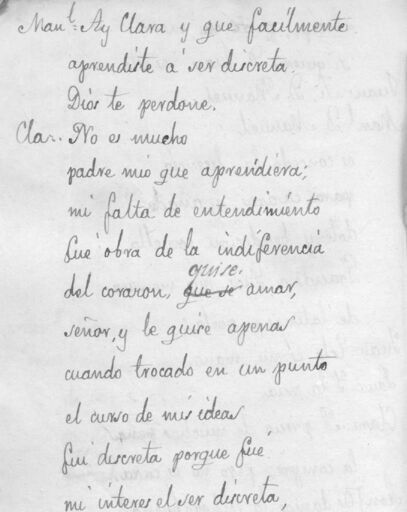 Man.l: Ay Clara y que facílmente
aprendiste á ser discreta.
Diós te perdone.
Cla.. No es mucho
padre mío que aprendíera;
mi falta de entendimiénto
fué obra de la indiferenciá
quise.
del corazon, que se amar,
señor, y le quise apenas
cuando trocado en un punto
el curso de mis ideas
fuí discreta porque fué
mi interes el ser discreta,